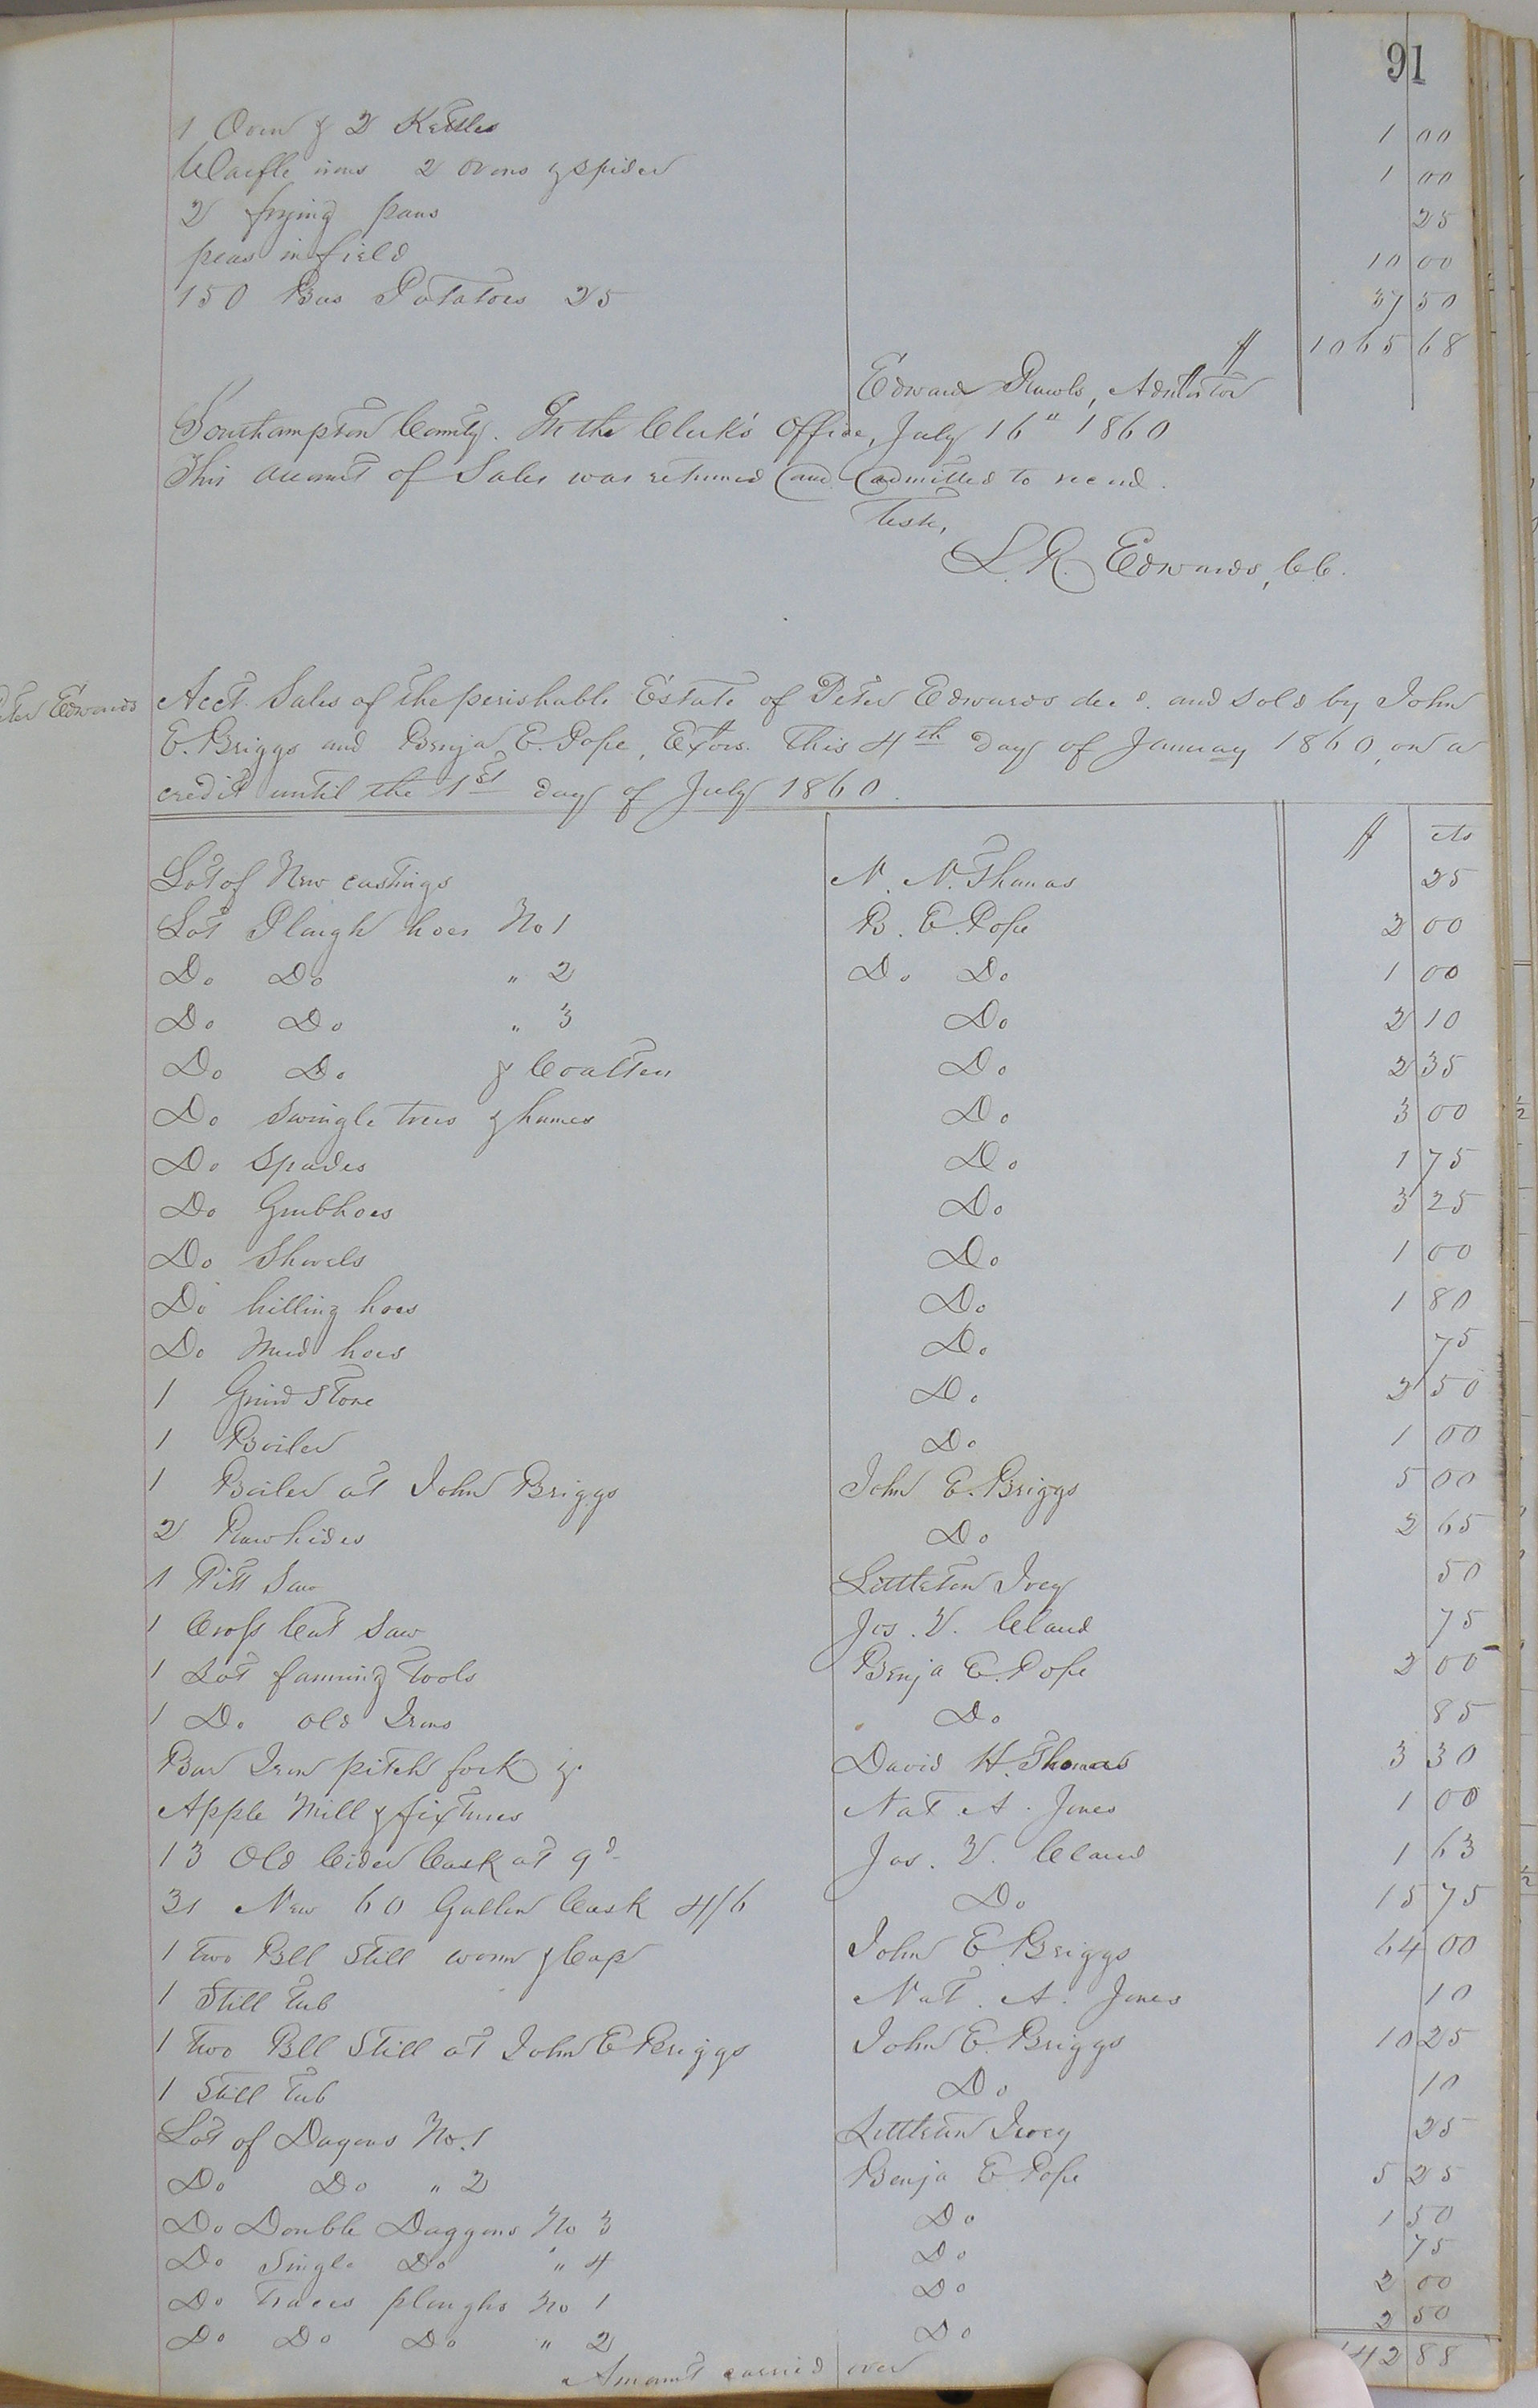 91
1 Oven & 2 Kettles 1 00
Waifle irons 2 ovens & spider 1 00
2 frying pans 25
peas in field 10 00
150 Bus Potatoes 25 37 50
$ 1065 68
Edward Rawls, Admstator
Southampton County. In the Clerk's Office, July 16" 1860
This account of Sales was returned and admitted to record.
Teste,
L. R. Edwards, CC.
Peter Edwards
Acct. Sales of the perishable Estate of Peter Edwards decd. and sold by John
E. Briggs and Benja E. Pope, Extors. This 4th day of January 1860, on a
credit until the 1st day of July 1860.
$ cts
Lot of New castings N. N. Thomas 25
Lot Plough hoes No 1 B. E. Pope 2 00
Do Do " 2 Do Do 1 00
Do Do " 3 Do 2 10
Do Do & Coalters Do 2 35
Do Swingle trees & hames Do 3 00
Do Spades Do 1 75
Do Grubhoes Do 3 25
Do Shovels Do 1 00
Do hilling hoes Do 1 80
Do Mud hoes Do 75
1 Grind Stone Do 2 50
1 Boiler Do 1 00
1 Boiler at John Briggs John E. Briggs 5 00
2 Rawhides Do 2 65
1 Pitt Saw Littleton Ivey 50
1 Cross Cut Saw Jos. V. Claud 75
1 Lot farming Tools Benja E. Pope 2 00
1 Do old Irons Do 85
Bar Iron pitch fork & David H. Thomas 3 30
Apple Mill & fixtures Nat. A. Jones 1 00
13 Old Cider Cask at 9d Jos. V. Claud 1 63
21 New 60 Gallon Cask 4/6 Do 15 75
1 two Bll Still worm & Cap John E Briggs 64 00
1 Still Tub Nat. A. Jones 10
1 two Bll Still at John E Briggs John E. Briggs 10 25
1 Still Tub Do 10
Lot of Dagons No. 1 Littleton Ivey 25
Do Do " 2 Benja E Pope 5 25
Do Double Daggons No 3 Do 1 50
Do Single Do " 4 Do 75
Do Traces ploughs No 1 Do 2 00
Do Do Do " 2 Do 2 50
Amount carried over 142 88